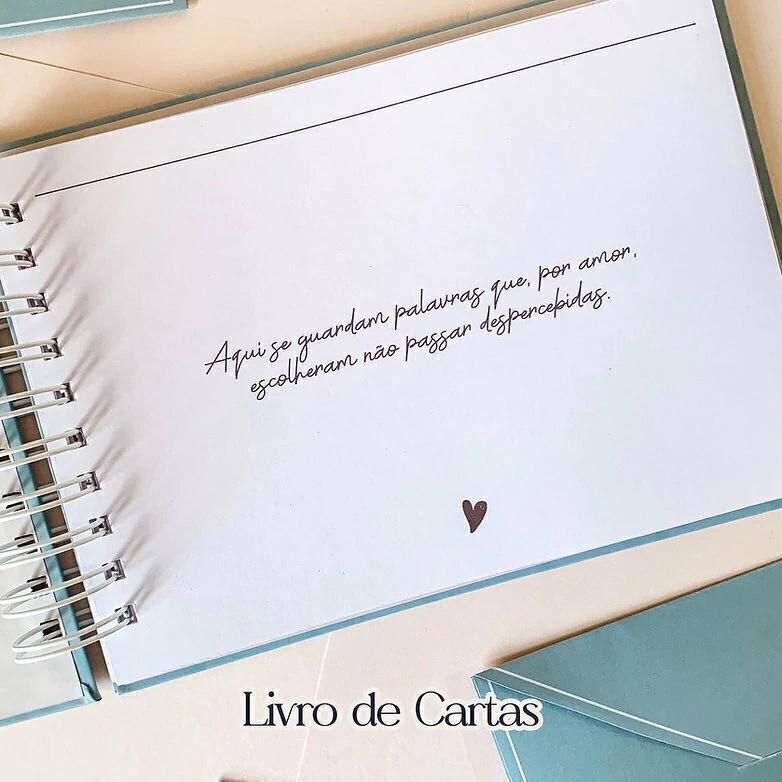 Aqui se guardam palavras que, por amor,
escolheram não passar despercebidas.
Livro de Cartas